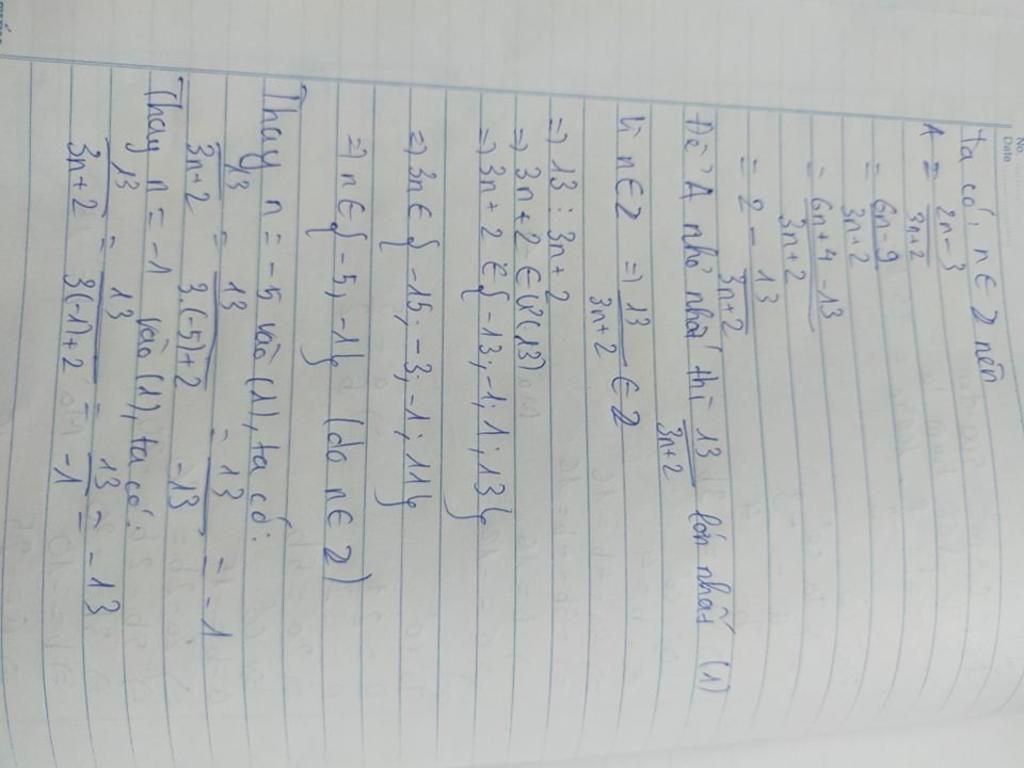 No.
Date
Ta có, n ∈ Z nên
A = \frac{2n-3}{3n+2}
= \frac{6n-9}{3n+2}
= \frac{6n+4-13}{3n+2}
= 2 - \frac{13}{3n+2}
Để A nhỏ nhất thì \frac{13}{3n+2} lớn nhất (1)
Vì n ∈ Z ⇒ \frac{13}{3n+2} ∈ Z
⇒ 13 ⋮ 3n+2
⇒ 3n+2 ∈ Ư(13)
⇒ 3n+2 ∈ {-13; -1; 1; 13}
⇒ 3n ∈ {-15; -3; -1; 11}
⇒ n ∈ {-5, -1} (do n ∈ Z)
Thay n = -5 vào (1), ta có:
\frac{13}{3n+2} = \frac{13}{3.(-5)+2} = \frac{13}{-13} = -1
Thay n = -1 vào (1), ta có:
\frac{13}{3n+2} = \frac{13}{3(-1)+2} = \frac{13}{-1} = -13